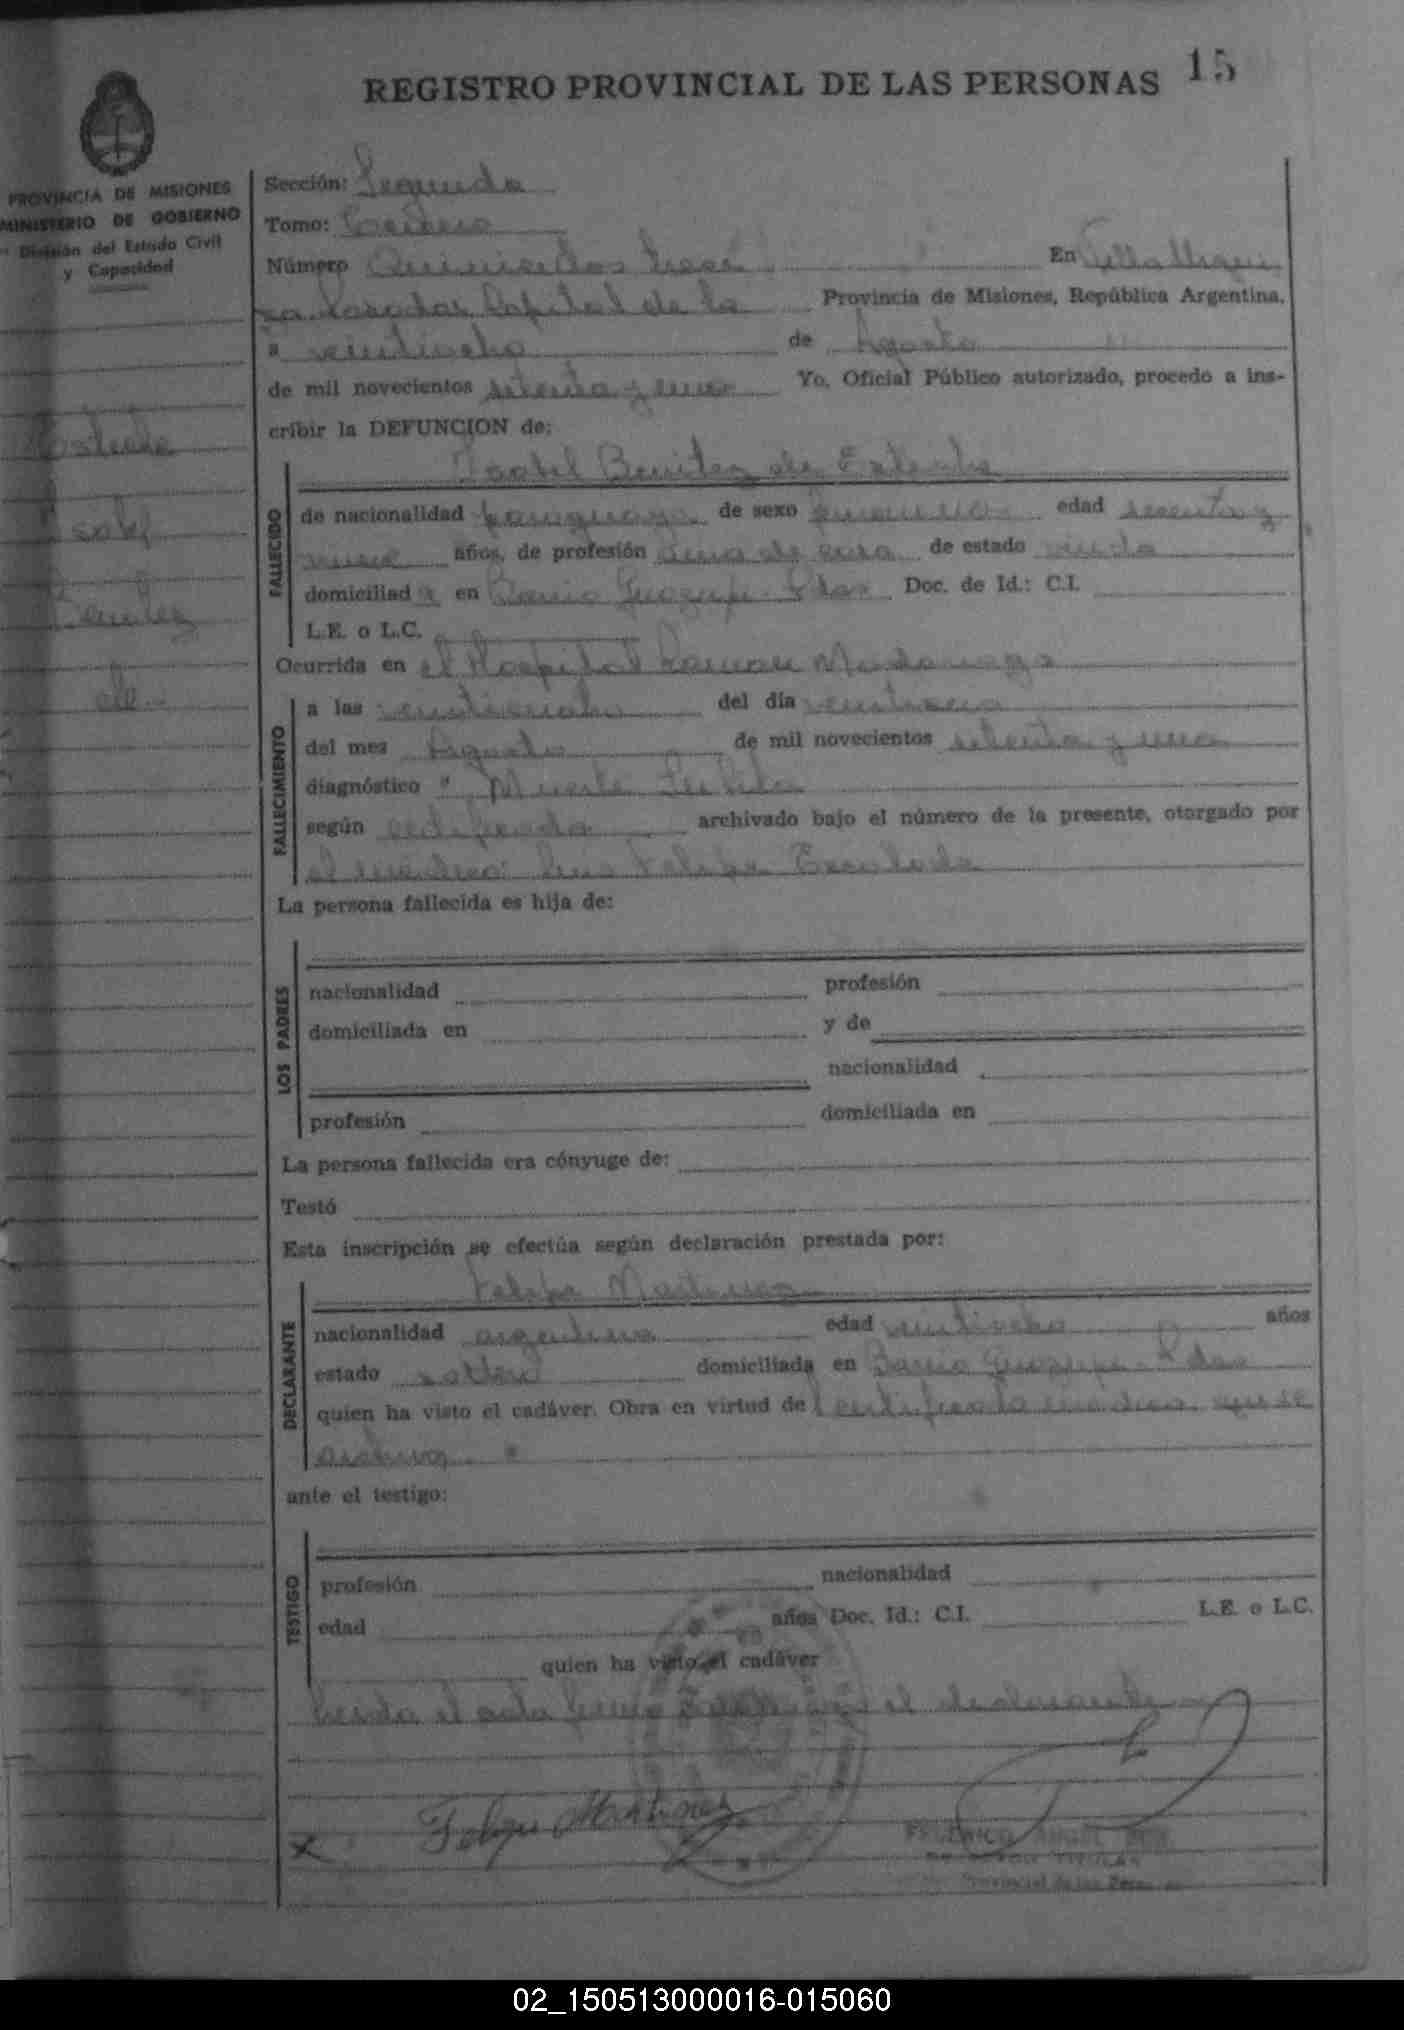 15
REGISTRO PROVINCIAL DE LAS PERSONAS
PROVINCIA DE MISIONES
MINISTERIO DE GOBIERNO
División del Estado Civil
y Capacidad
Sección: Segunda
Tomo: Tercero
Número Quinientos trece En Villa Urqui
za Posadas Capital de la Provincia de Misiones, República Argentina,
a veintiocho de Agosto
de mil novecientos setenta y uno Yo, Oficial Público autorizado, procedo a ins-
cribir la DEFUNCION de:
Isabel Benitez de
Isabel
Benitez
de
FALLECIDO
de nacionalidad paraguaya de sexo femenino edad sesenta y
nueve años, de profesión ama de casa de estado viuda
domiciliada en Barrio Guazupi - Pdas Doc. de Id.: C.I.
L.E. o L.C.
Ocurrida en el Hospital Ramon Madariaga
FALLECIMIENTO
a las del día
del mes Agosto de mil novecientos setenta y uno
diagnóstico " Muerte Subita
según certificado archivado bajo el número de la presente, otorgado por
el médico: Luis Felipe Escalada
La persona fallecida es hija de:
LOS PADRES
nacionalidad profesión
domiciliada en y de
nacionalidad
profesión domiciliada en
La persona fallecida era cónyuge de:
Testó
Esta inscripción se efectúa según declaración prestada por:
DECLARANTE
Felipe Martinez
nacionalidad argentino edad veintiocho años
estado soltero domiciliada en Barrio Guazupi - Pdas
quien ha visto el cadáver. Obra en virtud del certificado médico que se
archiva.
ante el testigo:
TESTIGO
profesión nacionalidad
edad años Doc. Id.: C.I. L.E. o L.C.
quien ha visto el cadáver
Leida el acta firma el declarante
Felipe Martinez
FEDERICO ANGEL
TITULAR
Provincial de las Personas
02_150513000016-015060